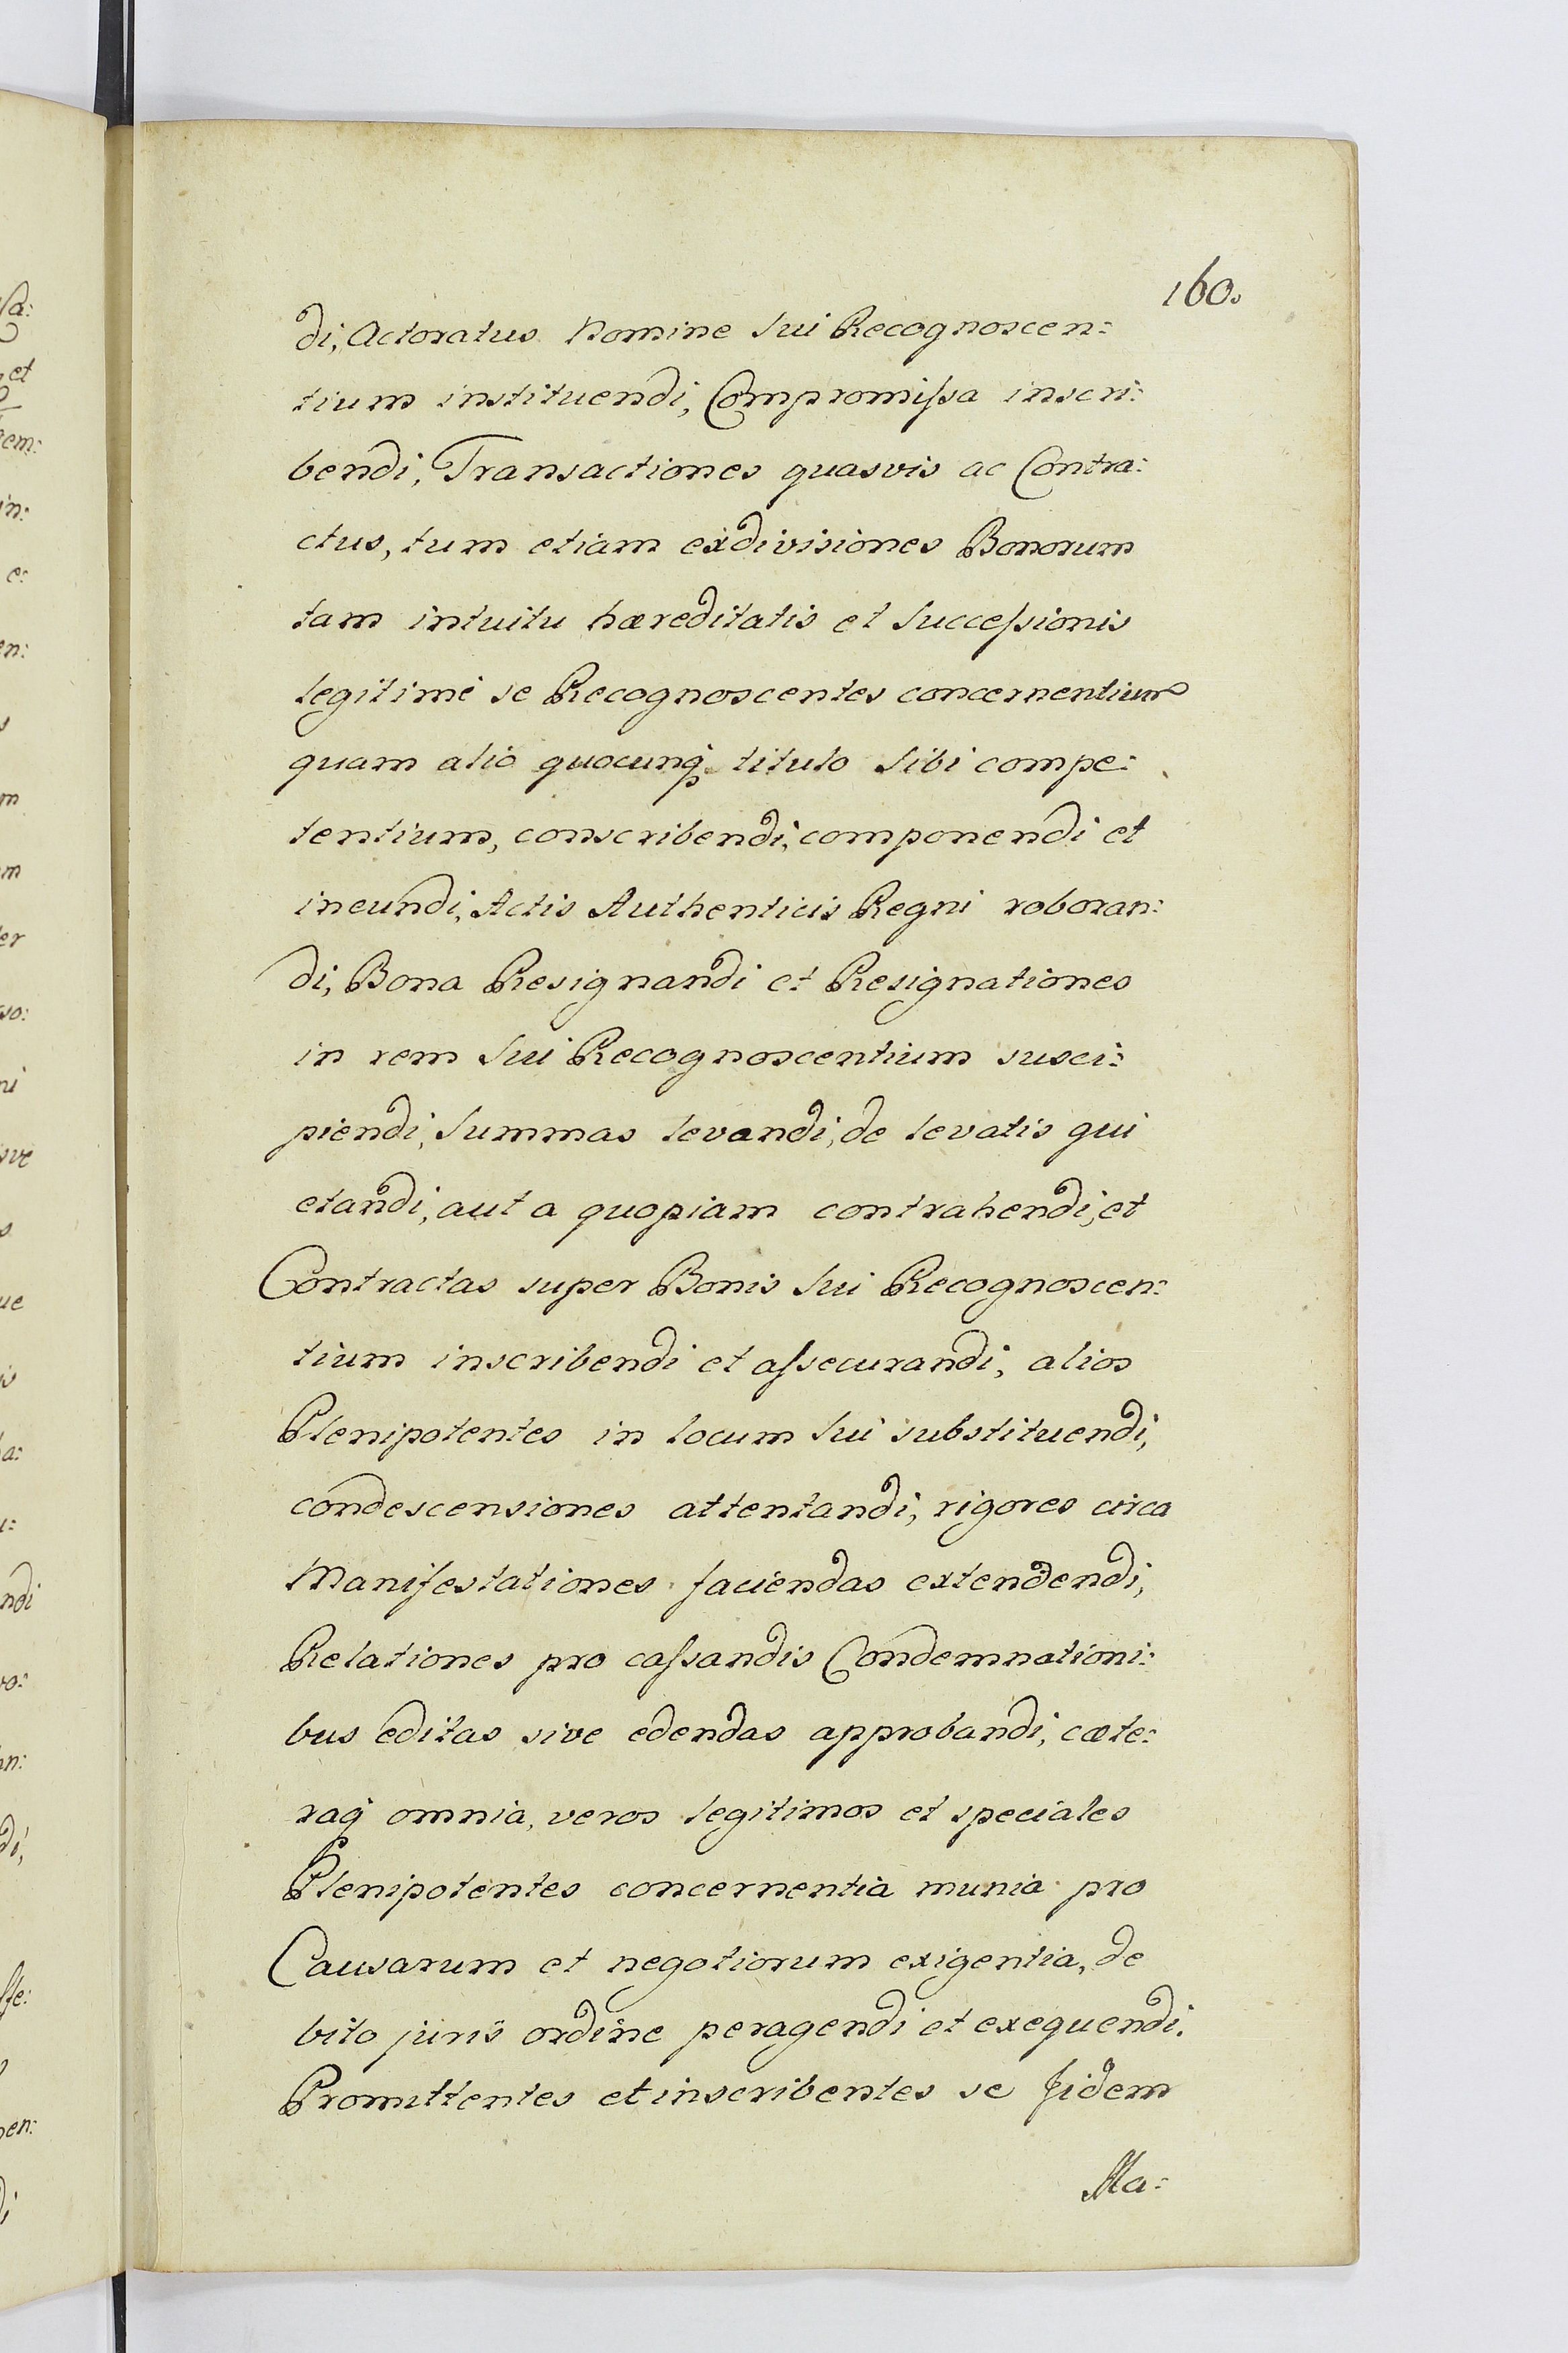 160.
di, Actoratus Nomine Sui Recognoscen:
tium instituendi, Compromiſsa inscri:
bendi, Transactiones quasvis ac Contra:
ctus, tum etiam exdivisiones Bonorum
tam intuitu hæreditatis et Succeſsionis
legitimè se Recognoscentes concernentium
quam alio quocunq̢ titulo Sibi compe:
tentium, conscribendi, componendi et
ineundi, Actis Authenticis Regni roboran:
di, Bona Resignandi et Resignationes
in rem Sui Recognoscentium susci:
piendi, Summas levandi, de levatis qui
etandi, aut a quopiam contrahendi, et
Contractas super Bonis Sui Recognoscen:
tium inscribendi et aſsecurandi, alios
Plenipotentes in locum Sui substituendi,
condescensiones attentandi, rigores circa
Manifestationes faciendas extendendi,
Relationes pro caſsandis Condemnationi:
bus editas sive edendas approbandi, cæte:
raq̢ omnia, veros legitimos et speciales
Plenipotentes concernentia munia pro
Causarum et negotiorum exigentia, de
bito juris ordine peragendi et exequendi.
Promittentes et inscribentes se Fidem
Ma: